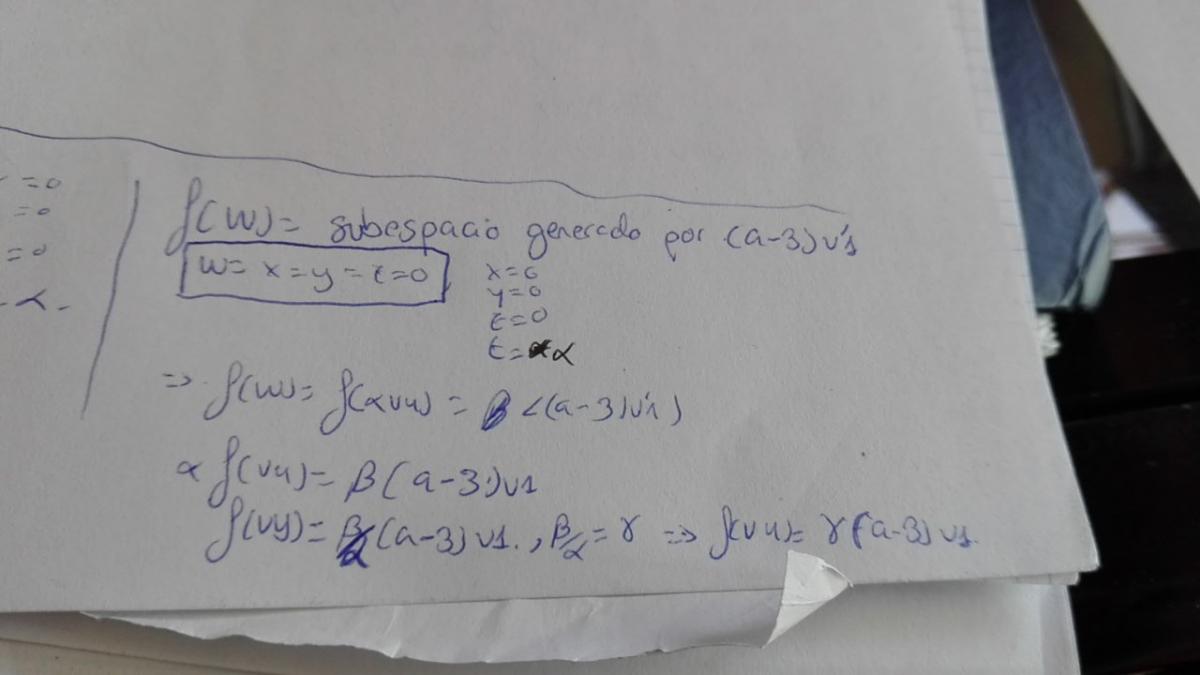 =0
=0
=0
-α-
f(W)= subespacio generado por (a-3)v'1
W= x=y=z=0
x=0
y=0
z=0
t=α
=> f(W)= f(αv4) = β<(a-3)v'1)
α f(v4)= β(a-3)v1
f(v4)= β/α (a-3)v1., β/α=γ => f(v4)= γ(a-3)v1.